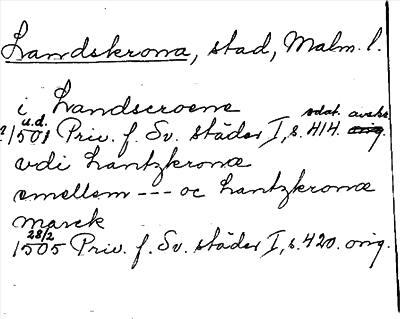 Landskrona, stad, Malm. l.
i Landscrone
u.d. odat. avskr.
1501 Priv. f. Sv. städer I, s. 414. orig.
vdi Lantzkronæ
emellem --- oc Lantzkronæ
marck
28/2
1505 Priv. f. Sv. städer I, s. 420. orig.